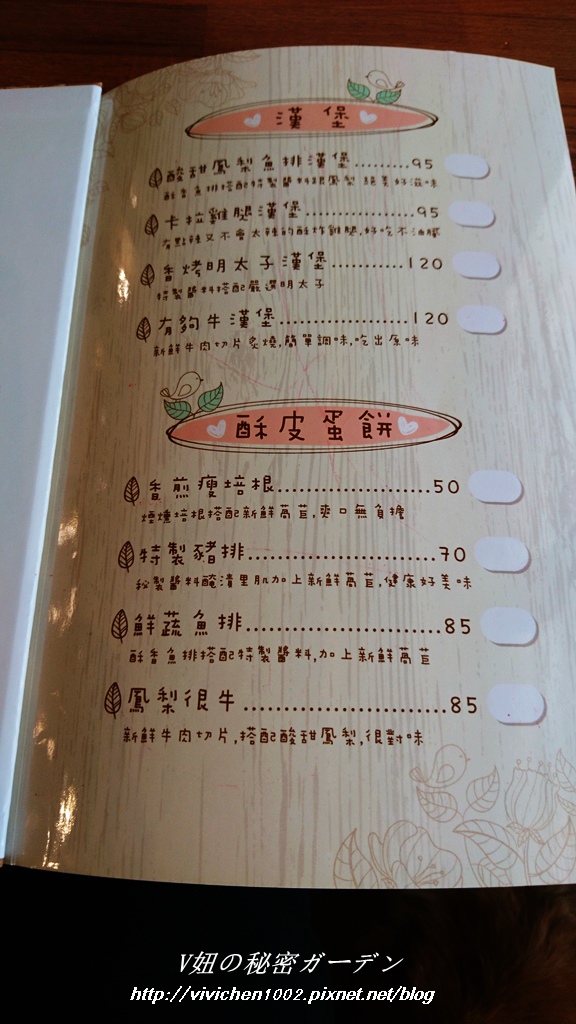 漢堡
酸甜鳳梨魚排漢堡.........95
酥香魚排搭配特製醬料跟鳳梨,絕美好滋味
卡拉雞腿漢堡................95
有點辣又不會太辣的酥炸雞腿,好吃不油膩
香烤明太子漢堡...........120
特製醬料搭配嚴選明太子
有夠牛漢堡....................120
新鮮牛肉切片炙燒,簡單調味,吃出原味
酥皮蛋餅
香煎瘦培根......................50
煙燻培根搭配新鮮萵苣,爽口無負擔
特製豬排...........................70
秘製醬料醃漬里肌加上新鮮萵苣,健康好美味
鮮蔬魚排............................85
酥香魚排搭配特製醬料,加上新鮮萵苣
鳳梨很牛............................85
新鮮牛肉切片,搭配酸甜鳳梨,很對味
V妞の秘密ガーデン
http://vivichen1002.pixnet.net/blog